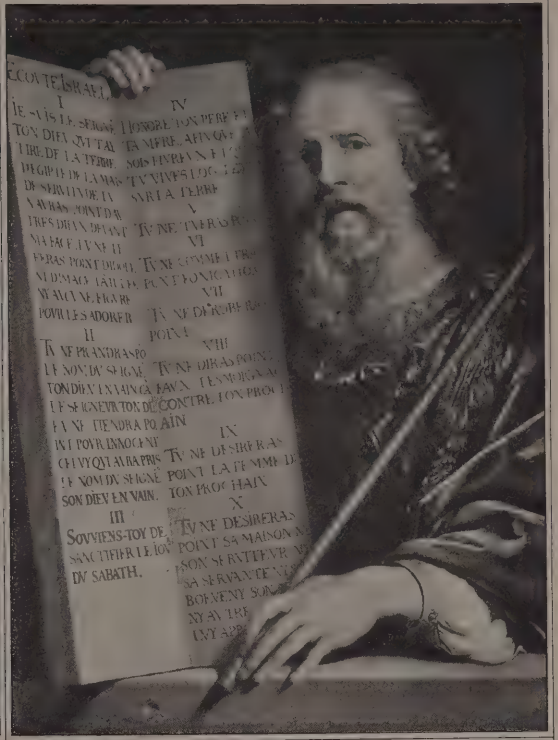 ECOVTE ISRAEL
I
IE SVIS LE SEIGNE
TON DIEV QVI T'AY
TIRE DE LA TERRE
D'EGIPTE DE LA MAIS
DE SERVITVDE TV
N'AVRAS POINT D'AV
TRES DIEVX DEVANT
MA FACE. TV NE TE
FERAS POINT D'IDOL
NY IMAGE TAILLEE
NY AVCVNE FIGVRE
POVR LES ADORER
II
TV NE PRANDRAS PO
LE NOM DV SEIGNE
TON DIEV EN VAIN CA
LE SEIGNEVR TON DI
EV NE TIENDRA PO
INT POVR INNOCENT
CELVY QVI AVRA PRIS
LE NOM DV SEIGNE
SON DIEV EN VAIN.
III
SOVVIENS-TOY DE
SANCTIFIER LE IOV
DV SABATH.
IV
HONORE TON PERE ET
TA MERE, AFIN QVE
SOIS HVREVX ET Q
TV VIVES LOG TEM
SVR LA TERRE
V
TV NE TVERAS P
VI
TV NE COMMETRAS
POINT FORNICATION
VII
TV NE DEROBERAS
POINT
VIII
TV NE DIRAS POINT
FAVX TESMOIGNAG
CONTRE TON PROCH
AIN
IX
TV NE DESIRERAS
POINT LA FEMME D
TON PROCHAIN
X
TV NE DESIRERAS
POINT SA MAISON N
SON SERVITEVR NY
SA SERVANTE NY
BOEVF NY SON
NY AVTRE
LVY APP